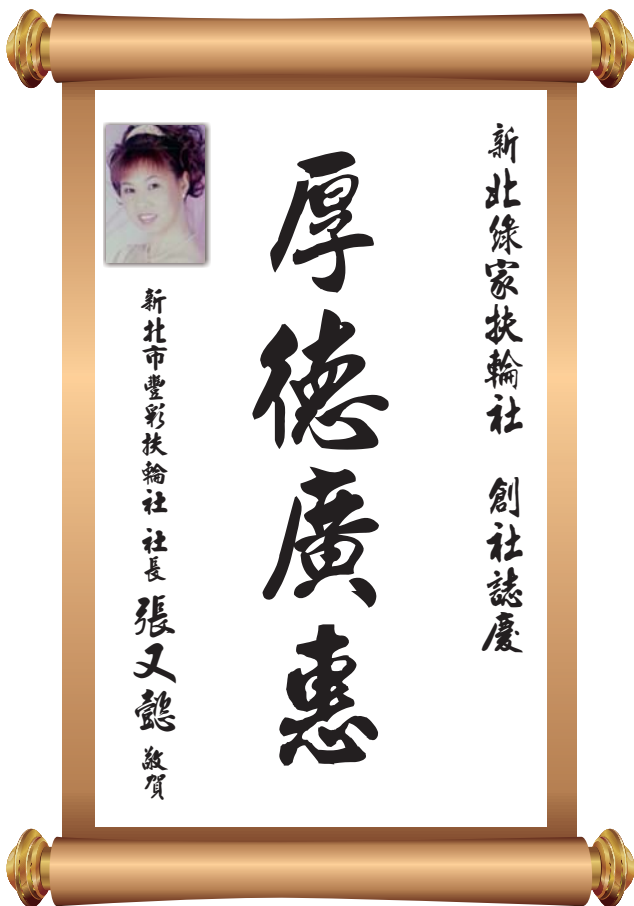 新北綠家扶輪社 創社誌慶
厚德廣惠
新北市豐彩扶輪社 社長 張又懿 敬賀